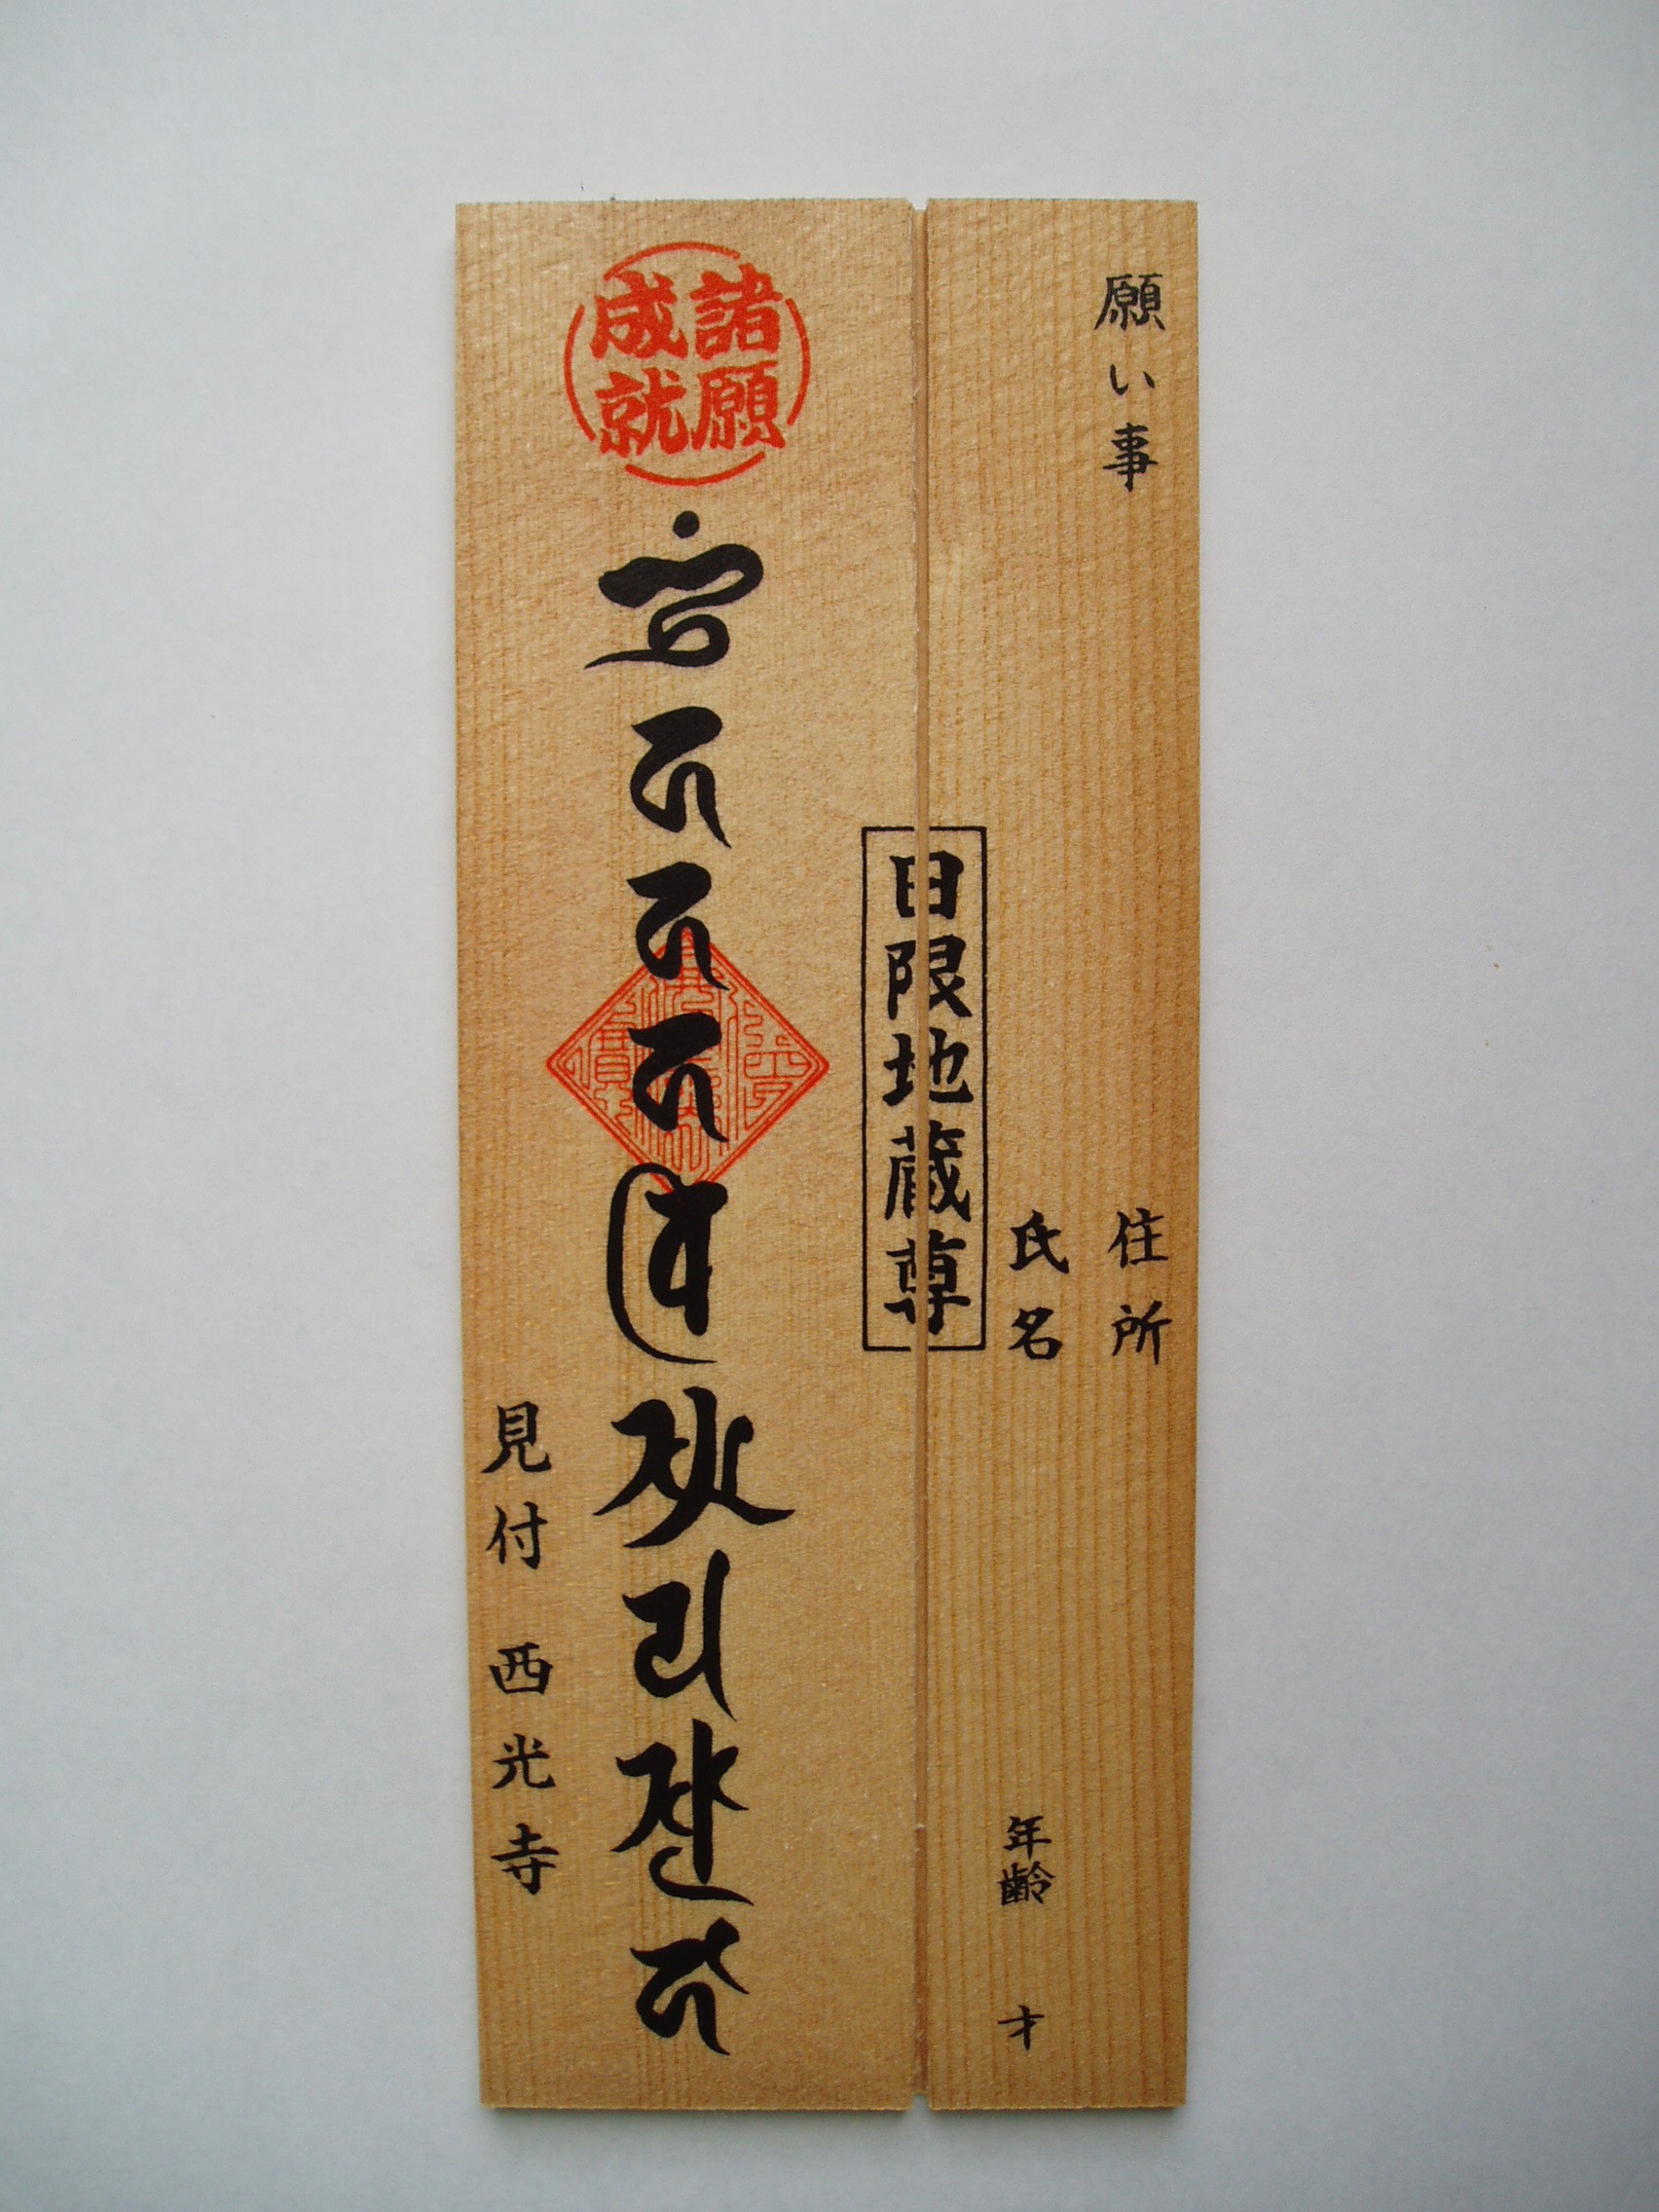 願い事
住所
氏名
年齢 才
日限地蔵尊
諸願
成就
𑖌𑖼𑖮𑖮𑖮𑖪𑖰𑖭𑖿𑖦𑖧𑖸𑖭𑖿𑖪𑖯𑖮𑖯
見付 西光寺